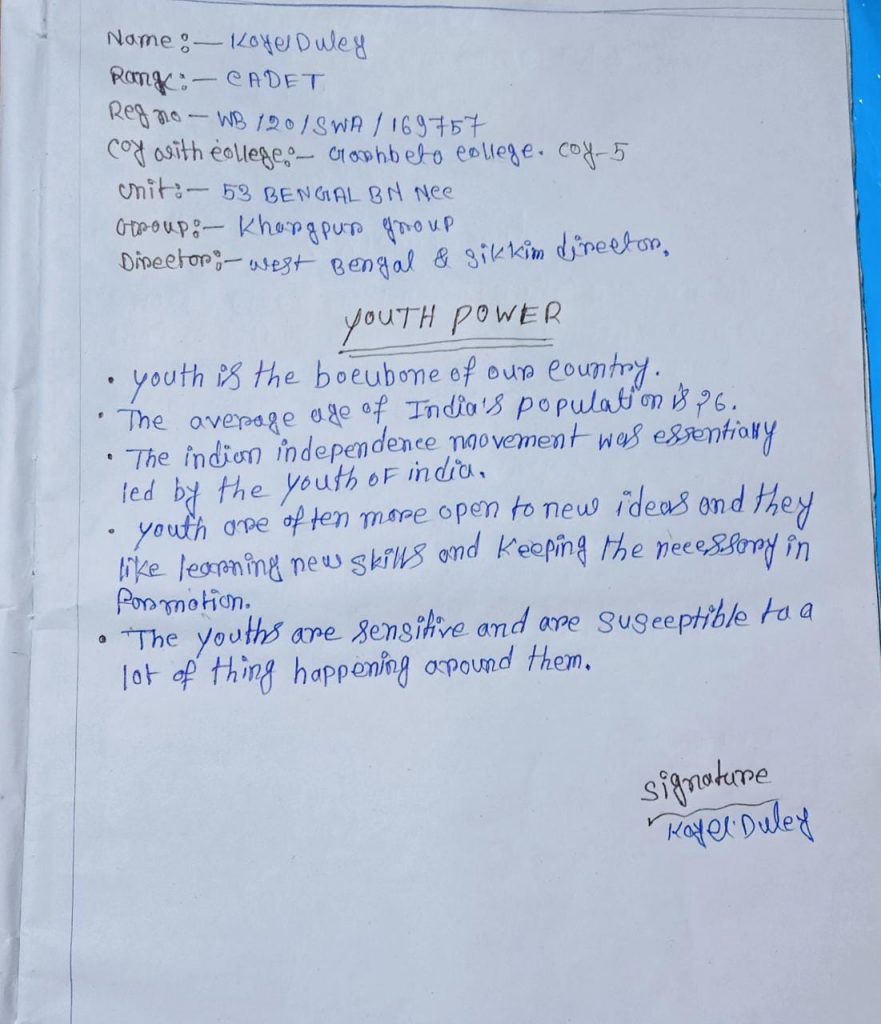 Name :- Koyel Duley
Rank :- CADET
Reg no - WB/20/SWA/169757
Coy with college :- Garhbeta college. coy-5
Unit :- 53 BENGAL BN NCC
Group :- Kharagpur group
Director :- West Bengal & Sikkim director.
YOUTH POWER
• youth is the boeubone of our country.
• The average age of India's population is 26.
• The indian independence movement was essentially
led by the youth of india.
• youth are often more open to new ideas and they
like learning new skills and keeping the necessary in
formation.
• The youths are sensitive and are susceptible to a
lot of thing happening around them.
Signature
Koyel Duley